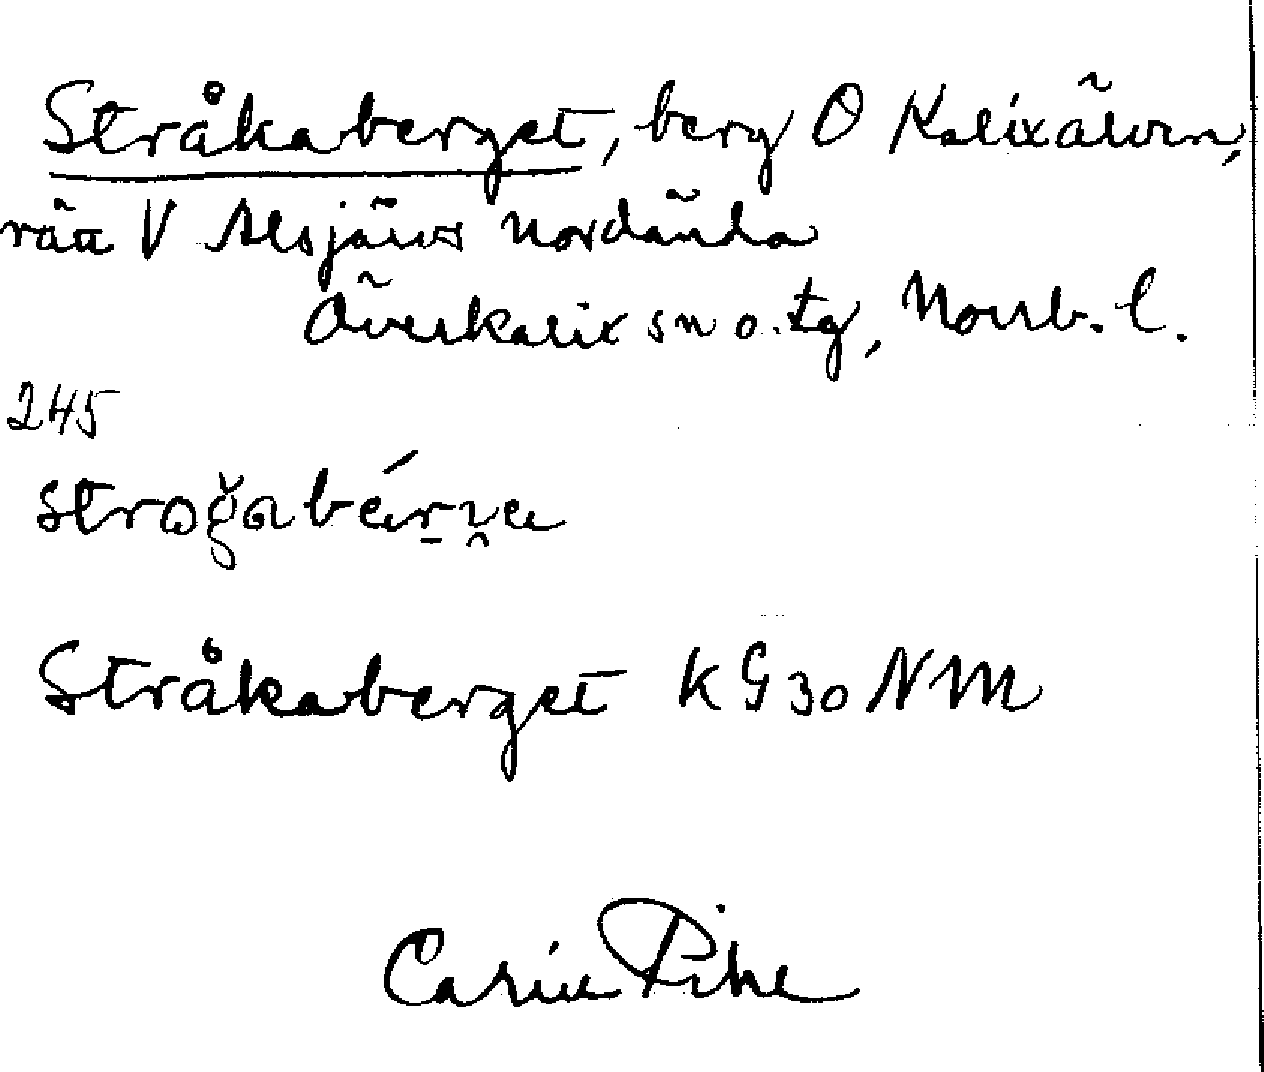 Stråkaberget, berg O Kalixälven,
rätt V Alsjärvs Nordända
Överkalix sn o. tg, Norrb. l.
245
Stråkaberget KG 30 NM
Carin Pihl